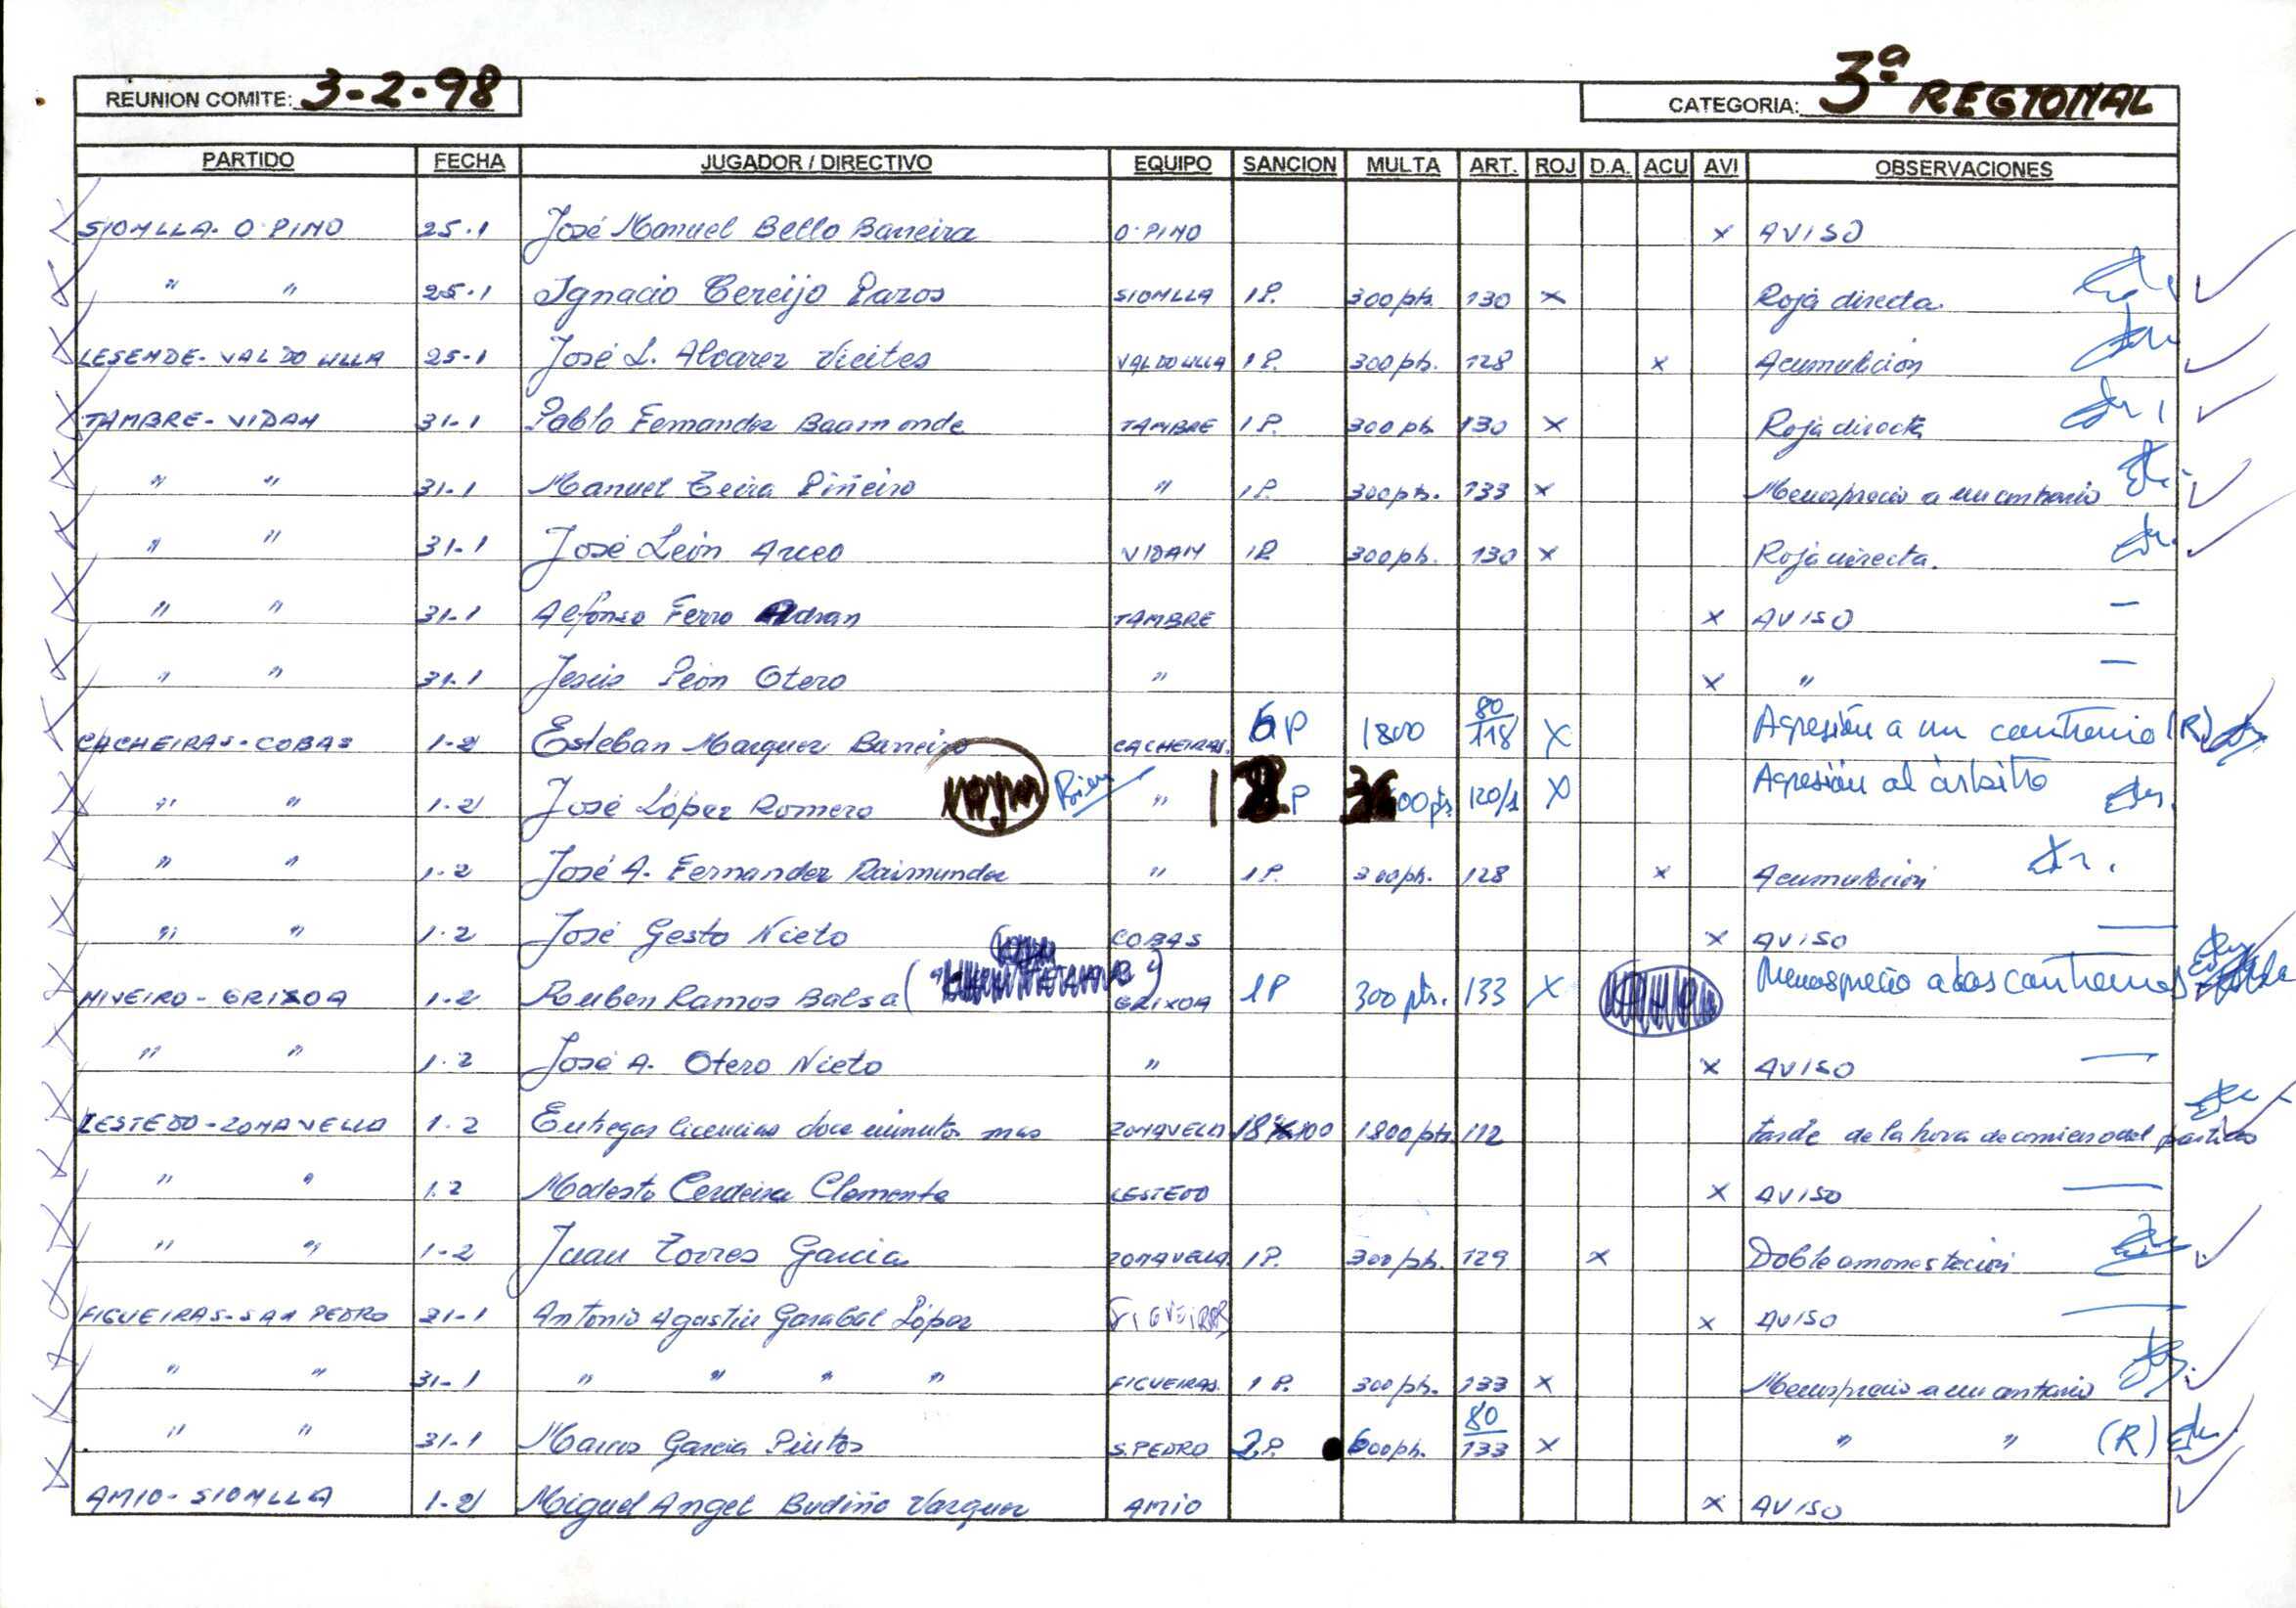 REUNION COMITE: 3-2-98 CATEGORIA: 3ª REGIONAL
PARTIDO FECHA JUGADOR / DIRECTIVO EQUIPO SANCION MULTA ART. ROJ D.A. ACU AVI OBSERVACIONES
SIONLLA - O PINO 25-1 José Manuel Bello Barreira O PINO x AVISO
" " 25-1 Ignacio Cereijo Pazos SIONLLA 1 P. 300 pts. 130 x Roja directa.
LESENDE - VAL DO ULLA 25-1 José L. Alvarez Vieites VAL DO ULLA 1 P. 300 pts. 128 x Acumulación
TAMBRE - VIDAN 31-1 Pablo Fernandez Baamonde TAMBRE 1 P. 300 pts 130 x Roja directa
" " 31-1 Manuel Teira Piñeiro " 1 P. 300 pts. 133 x Menosprecio a un contrario
" " 31-1 José León Arceo VIDAN 1P. 300 pts. 130 x Roja directa.
" " 31-1 Alfonso Ferro TAMBRE x AVISO
" " 31-1 Jesús Peón Otero " x "
CACHEIRAS - COBAS 1-2 Esteban Marquez Barreiro CACHEIRAS. 6 P 1800 80/118 X Agresión a un contrario (R)
" " 1-2 José López Romero " P 00 pts. 120/1 X Agresión al árbitro
" " 1-2 José A. Fernandez Raimundez " 1 P. 300 pts. 128 x Acumulación
" " 1-2 José Gesto Nieto COBAS x AVISO
NIVEIRO - GRIXOA 1-2 Ruben Ramos Balsa GRIXOA 1 P 300 pts. 133 X Menosprecio a los contrarios
" " 1-2 José A. Otero Nieto " x AVISO
LESTEDO - ZONAVELLA 1-2 Entregar licencias doce minutos mas ZONAVELLA 1800 pts 112 tarde de la hora de comienzo del partido
" " 1-2 Modesto Cerdeira Clemente LESTEDO x AVISO
" " 1-2 Juan Torres Garcia ZONAVELLA 1 P. 300 pts. 129 x Doble amonestación
FIGUEIRAS - SAN PEDRO 31-1 Antonio Agustin Garabal López FIGUEIRAS x AVISO
" " 31-1 " " " " FIGUEIRAS. 1 P. 300 pts. 133 x Menosprecio a un contrario
" " 31-1 Marcos Garcia Pintos S. PEDRO 2 P. 600 pts. 80/133 x " " (R)
AMIO - SIONLLA 1-2 Miguel Angel Budiño Vazquez AMIO x AVISO